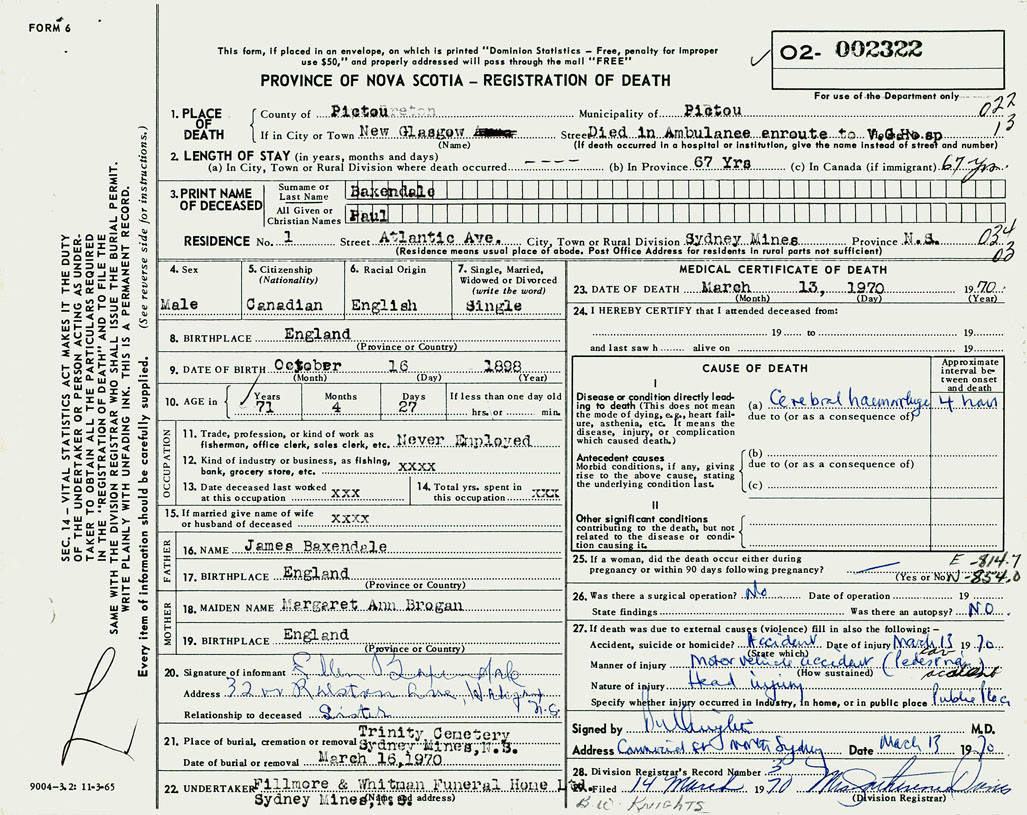 FORM 6
This form, if placed in an envelope, on which is printed "Dominion Statistics – Free, penalty for improper
use $50," and properly addressed will pass through the mail "FREE"
PROVINCE OF NOVA SCOTIA – REGISTRATION OF DEATH
02- 002322
For use of the Department only
022
13
1. PLACE OF DEATH
County of Pictou Municipality of Pictou
If in City or Town New Glasgow Street Died in Ambulance enroute to V.G.Hosp
(Name) (If death occurred in a hospital or institution, give the name instead of street and number)
2. LENGTH OF STAY (in years, months and days)
(a) In City, Town or Rural Division where death occurred ---- (b) In Province 67 Yrs (c) In Canada (if immigrant) 67 yrs.
3. PRINT NAME OF DECEASED
Surname or Last Name Baxendale
All Given or Christian Names Paul
RESIDENCE No. 1 Street Atlantic Ave. City, Town or Rural Division Sydney Mines Province N.S. 034
(Residence means usual place of abode. Post Office Address for residents in rural parts not sufficient) 03
4. Sex
Male
5. Citizenship
(Nationality)
Canadian
6. Racial Origin
English
7. Single, Married,
Widowed or Divorced
(write the word)
Single
8. BIRTHPLACE England
(Province or Country)
9. DATE OF BIRTH October 16 1898
(Month) (Day) (Year)
10. AGE in Years 71 Months 4 Days 27 If less than one day old
hrs. or min.
OCCUPATION
11. Trade, profession, or kind of work as
fisherman, office clerk, sales clerk, etc. Never Employed
12. Kind of industry or business, as fishing,
bank, grocery store, etc. xxxx
13. Date deceased last worked
at this occupation xxx
14. Total yrs. spent in
this occupation xxx
15. If married give name of wife
or husband of deceased xxxx
FATHER
16. NAME James Baxendale
17. BIRTHPLACE England
(Province or Country)
MOTHER
18. MAIDEN NAME Margaret Ann Brogan
19. BIRTHPLACE England
(Province or Country)
20. Signature of informant Ellen
Address N.S.
Relationship to deceased Sister
21. Place of burial, cremation or removal Trinity Cemetery
Sydney Mines, N.S.
Date of burial or removal March 16, 1970
22. UNDERTAKER Fillmore & Whitman Funeral Home Ltd.
Sydney Mines, N.S.
(Name and address)
MEDICAL CERTIFICATE OF DEATH
23. DATE OF DEATH March 13, 1970 19 70
(Month) (Day) (Year)
24. I HEREBY CERTIFY that I attended deceased from:
19 to 19
and last saw h alive on 19
CAUSE OF DEATH
Approximate
interval be-
tween onset
and death
I
Disease or condition directly lead-
ing to death (This does not
mean the mode of dying, e.g., heart fail-
ure, asthenia, etc. It means the
disease, injury, or complication
which caused death.)
(a) Cerebral haemorrhage 4 hours
due to (or as a consequence of)
Antecedent causes
Morbid conditions, if any, giving
rise to the above cause, stating
the underlying condition last.
(b)
due to (or as a consequence of)
(c)
II
Other significant conditions
contributing to the death, but not
related to the disease or condi-
tion causing it.
25. If a woman, did the death occur either during
pregnancy or within 90 days following pregnancy?
(Yes or No)
E -814.7
N -854.0
26. Was there a surgical operation? No Date of operation 19
State findings Was there an autopsy? NO
27. If death was due to external causes (violence) fill in also the following:–
Accident, suicide or homicide? Accident Date of injury March 13 19 70
(State which)
Manner of injury Motor vehicle accident (Pedestrian)
(How sustained) car accident
Nature of injury Head injury
Specify whether injury occurred in industry, in home, or in public place Public place
Signed by M.D.
Address Commercial St North Sydney Date March 13 19 70
28. Division Registrar's Record Number 3
29. Filed 14 March 1970 Mrs Davis
(Division Registrar)
B.W. KNIGHTS
SEC. 14 – VITAL STATISTICS ACT MAKES IT THE DUTY
OF THE UNDERTAKER OR PERSON ACTING AS UNDER-
TAKER TO OBTAIN ALL THE PARTICULARS REQUIRED
IN THE "REGISTRATION OF DEATH" AND TO FILE THE
SAME WITH THE DIVISION REGISTRAR WHO SHALL ISSUE THE BURIAL PERMIT.
WRITE PLAINLY WITH UNFADING INK. THIS IS A PERMANENT RECORD.
Every item of information should be carefully supplied. (See reverse side for instructions.)
9004-3.2: 11-3-65